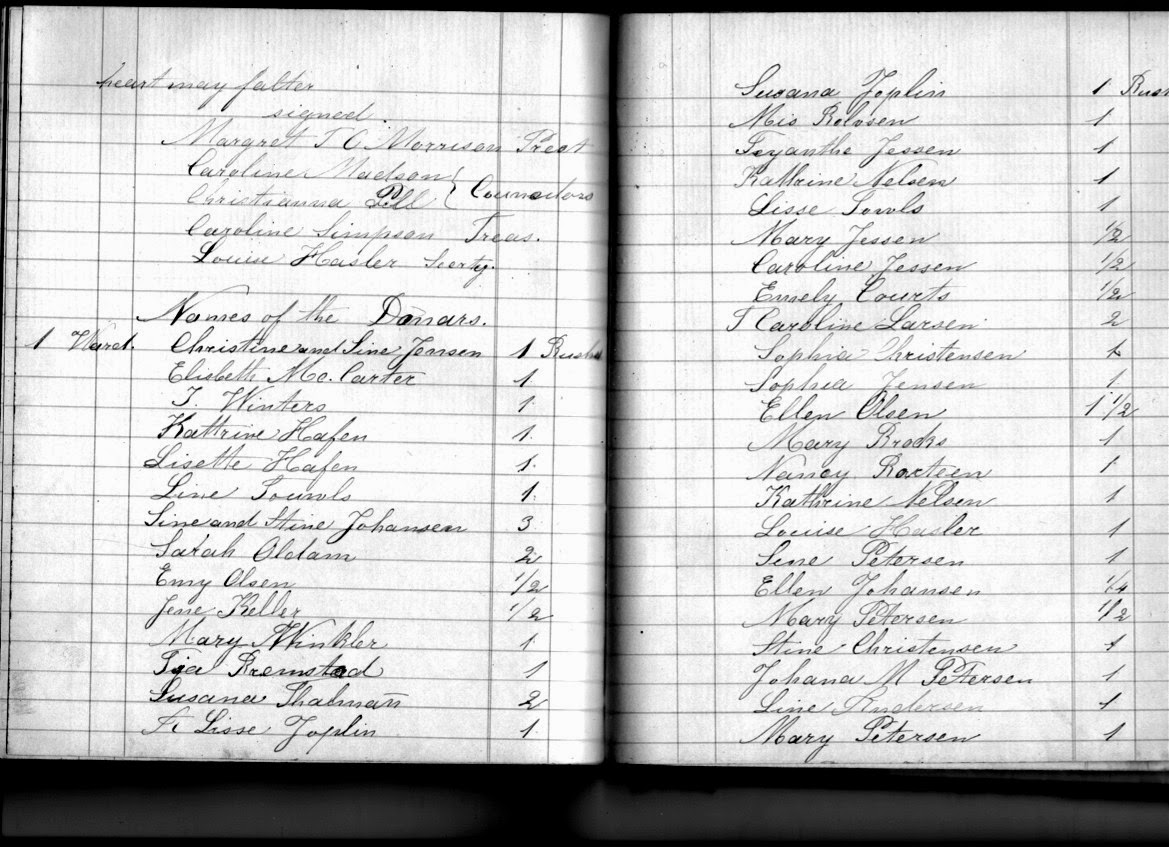 heart may falter
signed.
Margret T C Morrison Prest
Caroline Madson
Christianna Pell } Counsitors
Caroline Simpson Treas.
Louise Hasler Secrty.
Names of the Donars.
1 Ward. Christine and Sine Jensen 1 Bushel
Elisbeth Mc. Carter 1
T Winters 1.
Kattrine Hafen 1.
Lisette Hafen 1.
Line Souwls 1.
Sine and Stine Johansen 3
Sarah Oldam 2
Emy Olsen 1/2
Jene Keller 1/2
Mary Winkler 1
Bremstad 1
Susana Thalman 2
Lisse Joplin 1.
Susana Joplin 1 Bush
Mis Rolvsen 1
Jessen 1
Kathrine Nelsen 1
Lisse Sowls 1
Mary Jessen 1/2
Caroline Jessen 1/2
Emely Courts 1/2
T Caroline Larsen 2
Sophia Christensen 1
Sophia Jensen 1
Ellen Olsen 1 1/2
Mary Brooks 1
Nancy 1
Kathrine Nelsen 1
Louise Hasler 1
Sene Petersen 1
Ellen Johansen 1/4
Mary Petersen 1/2
Stine Christensen 1
Johana M Petersen 1
Line Andersen 1
Mary Petersen 1